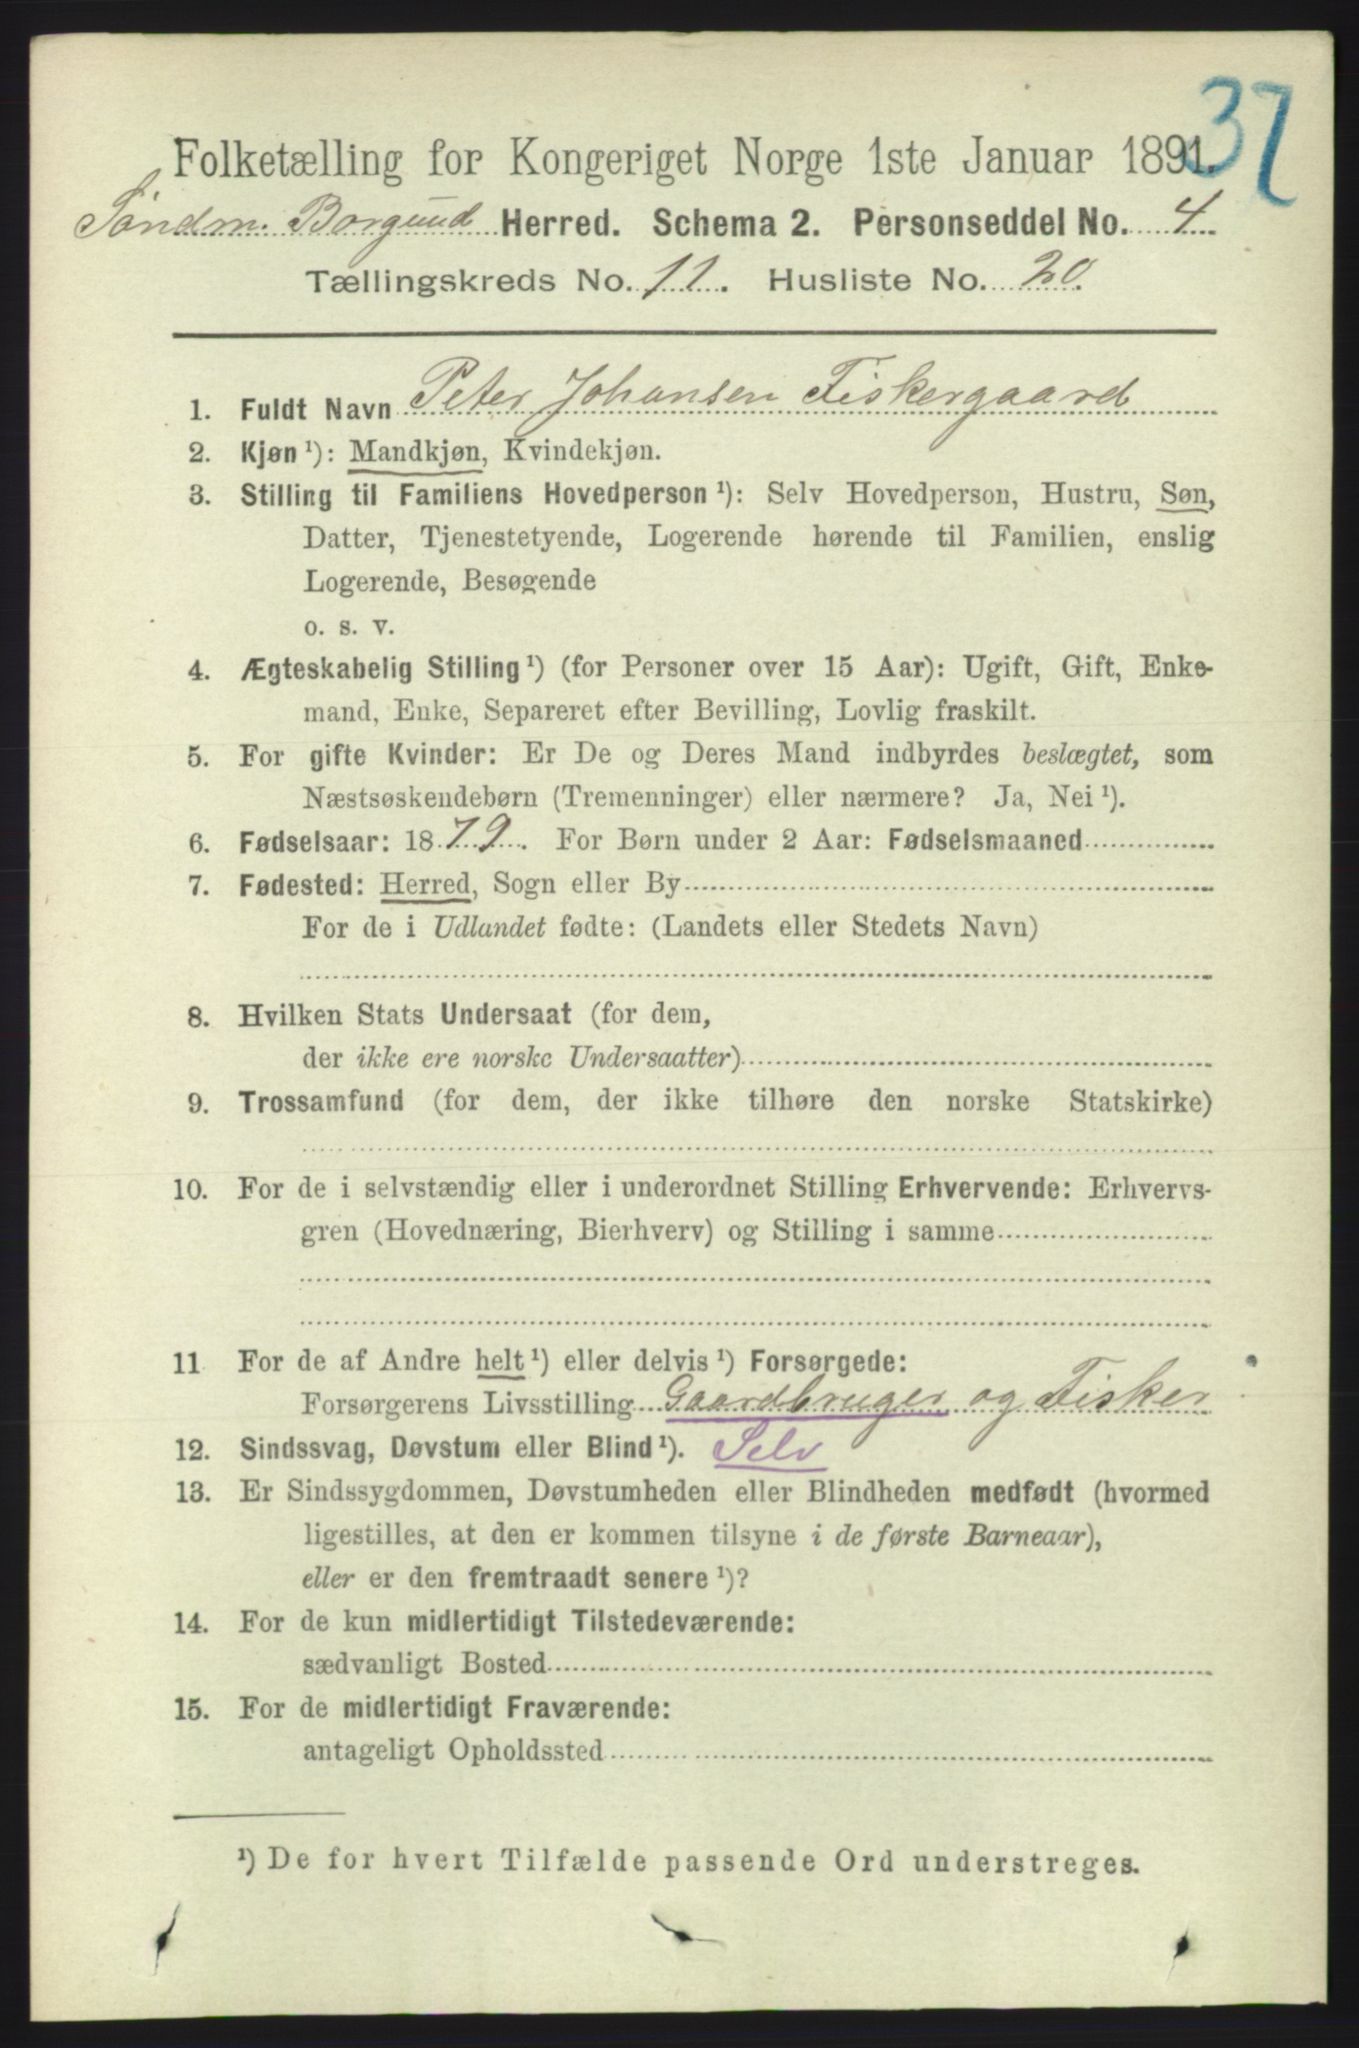 37
Folketælling for Kongeriget Norge 1ste Januar 1891.
Søndm. Borgund Herred. Schema 2. Personseddel No. 4
Tællingskreds No. 11. Husliste No. 20.
1. Fuldt Navn Peter Johansen Fiskergaard
2. Kjøn ¹): Mandkjøn, Kvindekjøn.
3. Stilling til Familiens Hovedperson ¹): Selv Hovedperson, Hustru, Søn,
Datter, Tjenestetyende, Logerende hørende til Familien, enslig
Logerende, Besøgende
o. s. v.
4. Ægteskabelig Stilling ¹) (for Personer over 15 Aar): Ugift, Gift, Enke-
mand, Enke, Separeret efter Bevilling, Lovlig fraskilt.
5. For gifte Kvinder: Er De og Deres Mand indbyrdes beslægtet, som
Næstsøskendebørn (Tremenninger) eller nærmere? Ja, Nei ¹).
6. Fødselsaar: 1879. For Børn under 2 Aar: Fødselsmaaned
7. Fødested: Herred, Sogn eller By
For de i Udlandet fødte: (Landets eller Stedets Navn)
8. Hvilken Stats Undersaat (for dem,
der ikke ere norske Undersaatter)
9. Trossamfund (for dem, der ikke tilhøre den norske Statskirke)
10. For de i selvstændig eller i underordnet Stilling Erhvervende: Erhvervs-
gren (Hovednæring, Bierhverv) og Stilling i samme
11 For de af Andre helt ¹) eller delvis ¹) Forsørgede:
Forsørgerens Livsstilling Gaardbruger og Fisker
12. Sindssvag, Døvstum eller Blind ¹). Selv
13. Er Sindssygdommen, Døvstumheden eller Blindheden medfødt (hvormed
ligestilles, at den er kommen tilsyne i de første Barneaar),
eller er den fremtraadt senere ¹)?
14. For de kun midlertidigt Tilstedeværende:
sædvanligt Bosted
15. For de midlertidigt Fraværende:
antageligt Opholdssted
¹) De for hvert Tilfælde passende Ord understreges.